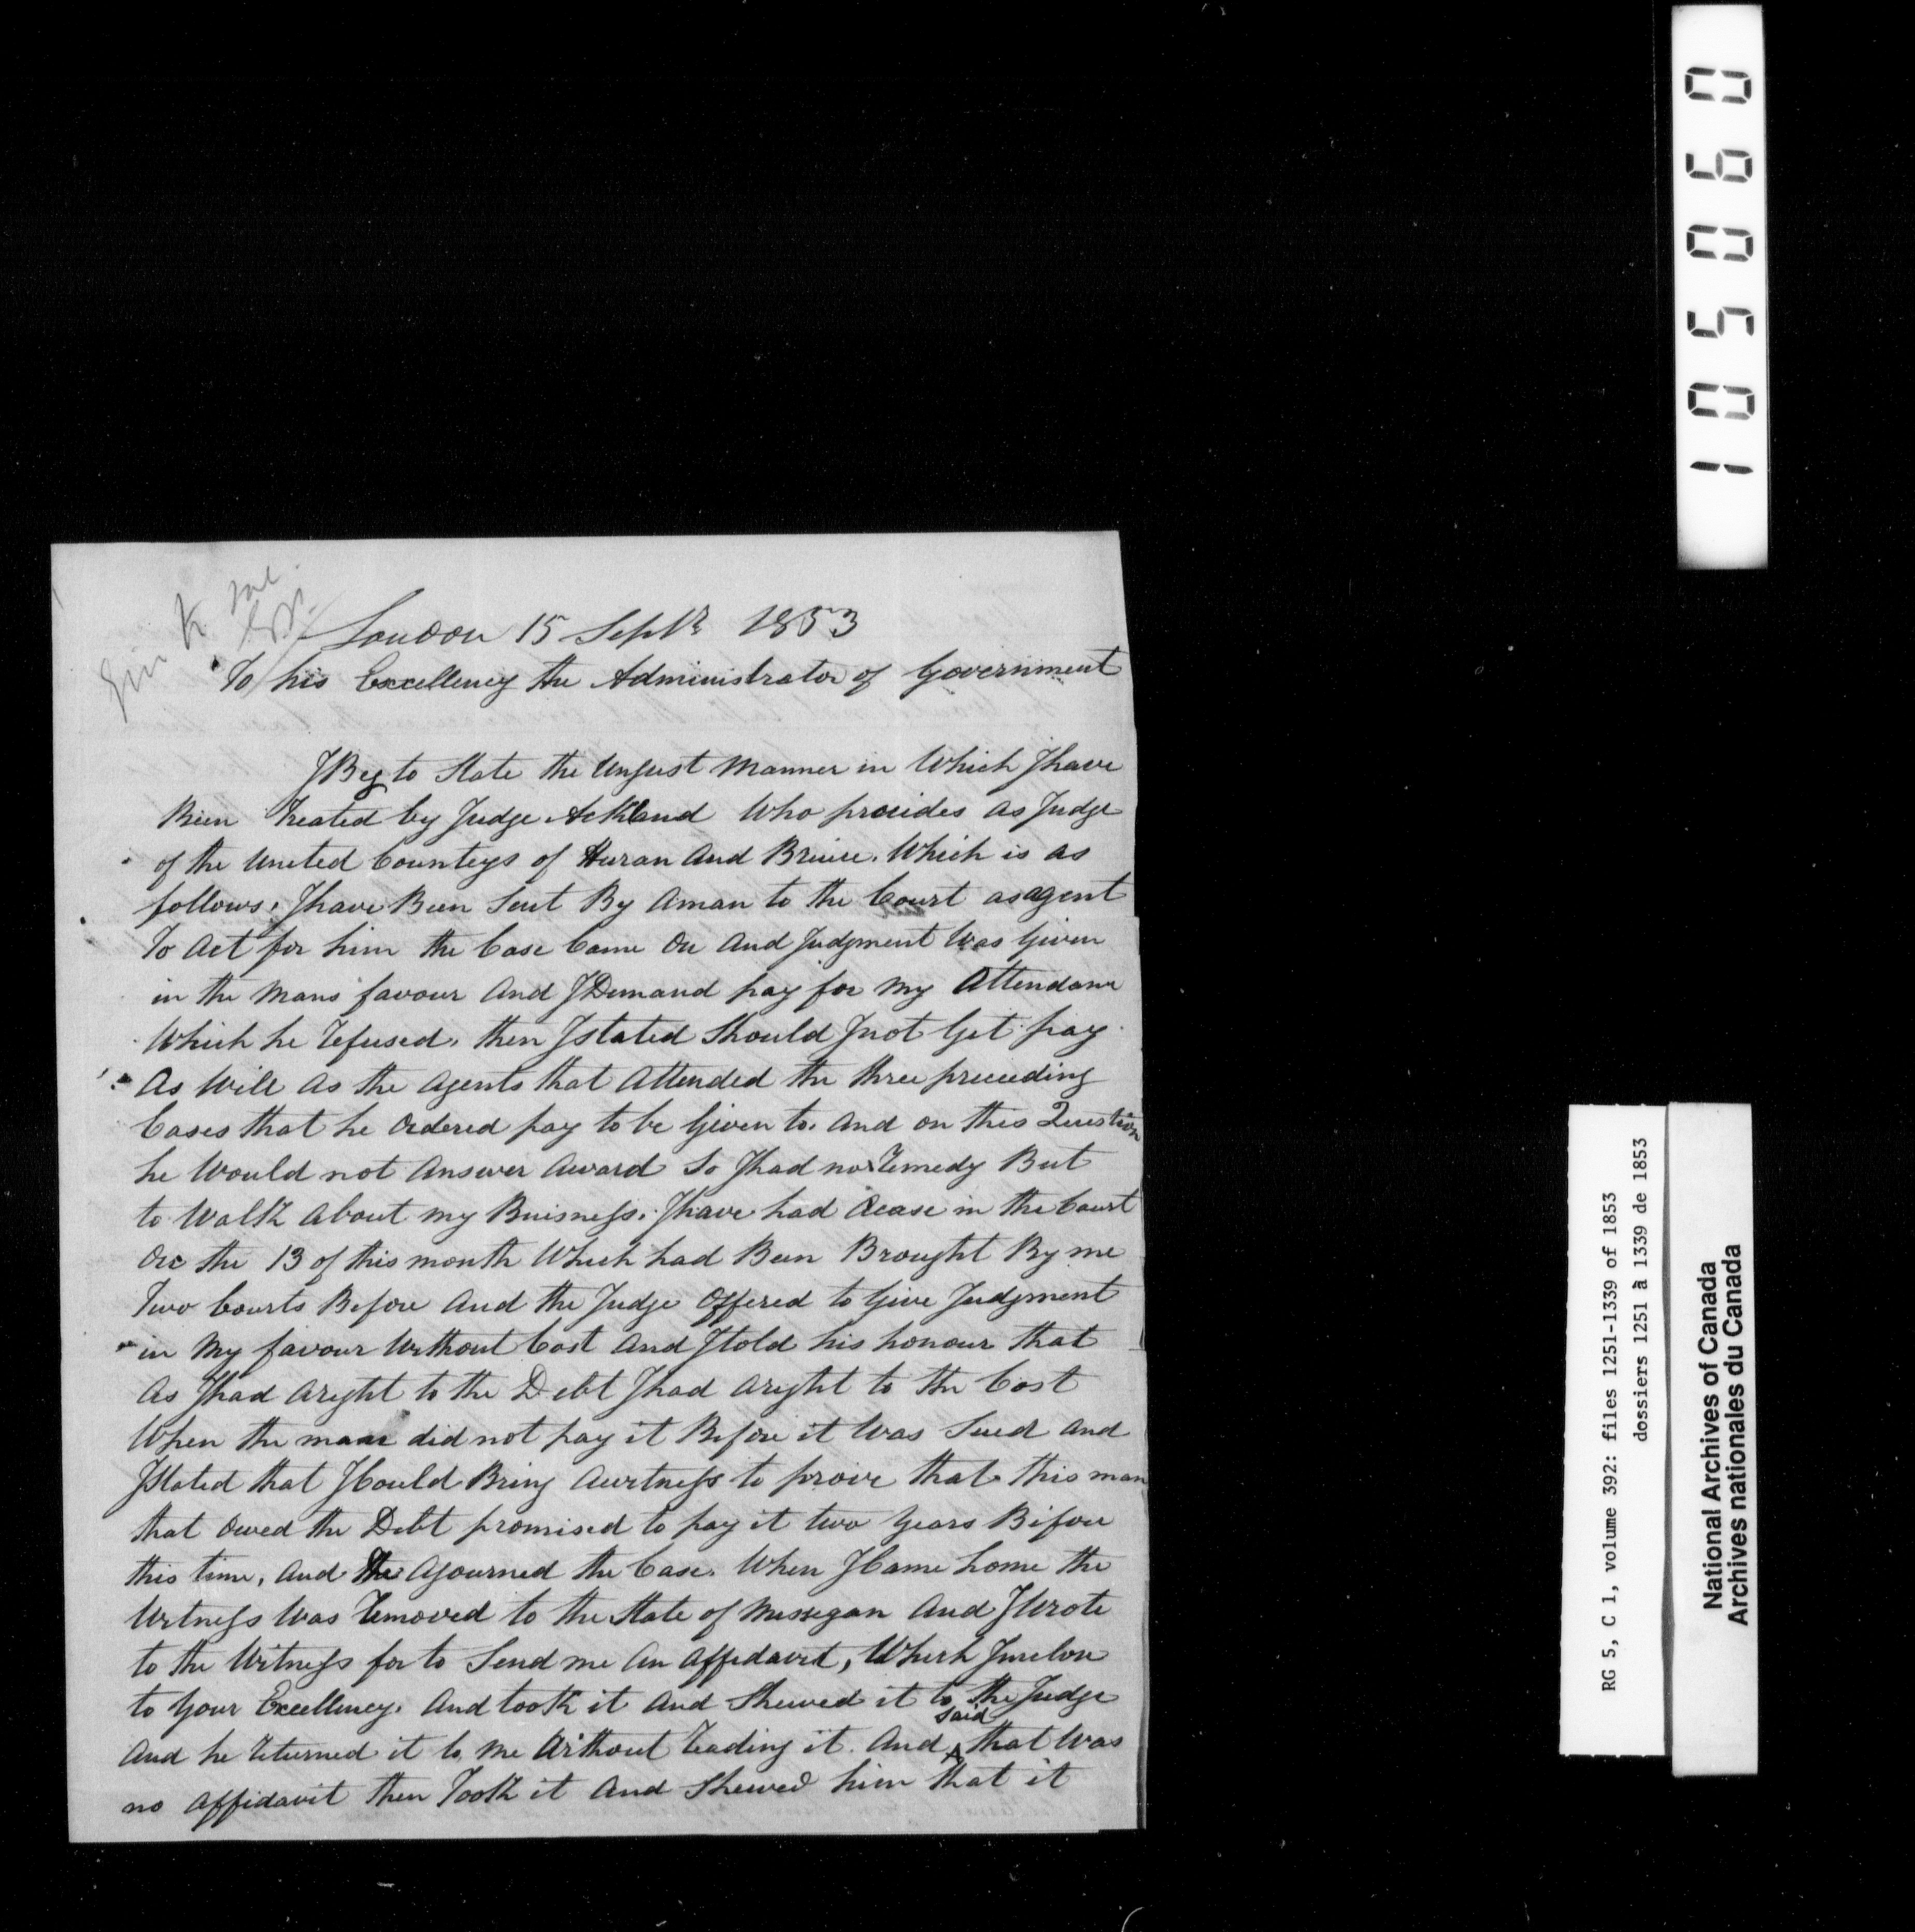 London 15 Septr 1853
To his Excellency the Administrator of Government
I Beg to State the Unjust Manner in Which I have
Been Treated by Judge Ackland Who presides as Judge
of the United Counteys of Huran And Bruce. Which is as
follows, I have Been Sent By A man to the Court as agent
To Act for him the Case Came On And Judgment Was Given
in the Mans favour And I Demand pay for My Attendance
Which he Refused, then I stated Should I not Get pay
As Will As the Agents that Attended the three preceeding
Cases that he Ordered pay to be Given to. And on this Question
he Would not Answer A word So I had no Remedy But
to Walk About my Buisness. I have had A case in the Court
On the 13 of this month Which had Been Brought By me
Two Courts Before And the Judge Offered to Give Judgment
in My favour Without Cost And I told his honour that
As I had A right to the Debt I had A right to the Cost
When the man did not pay it Before it Was Sued And
I Stated that I Could Bring A witness to prove that this man
that Owed the Debt promised to pay it two Years Before
this time, And He Ajourned the Case. When I Came home the
Witness Was Removed to the State of Missegan And I Wrote
to the Witness for to Send me An Affidavit, Which I inclose
to Your Excellency. And took it And Shewed it to the Judge
And he Returned it to Me Without Reading it. And said that Was
no Affidavit then Took it And Shewed him that it
105060
RG 5, C 1, volume 392: files 1251-1339 of 1853
dossiers 1251 à 1339 de 1853
National Archives of Canada
Archives nationales du Canada